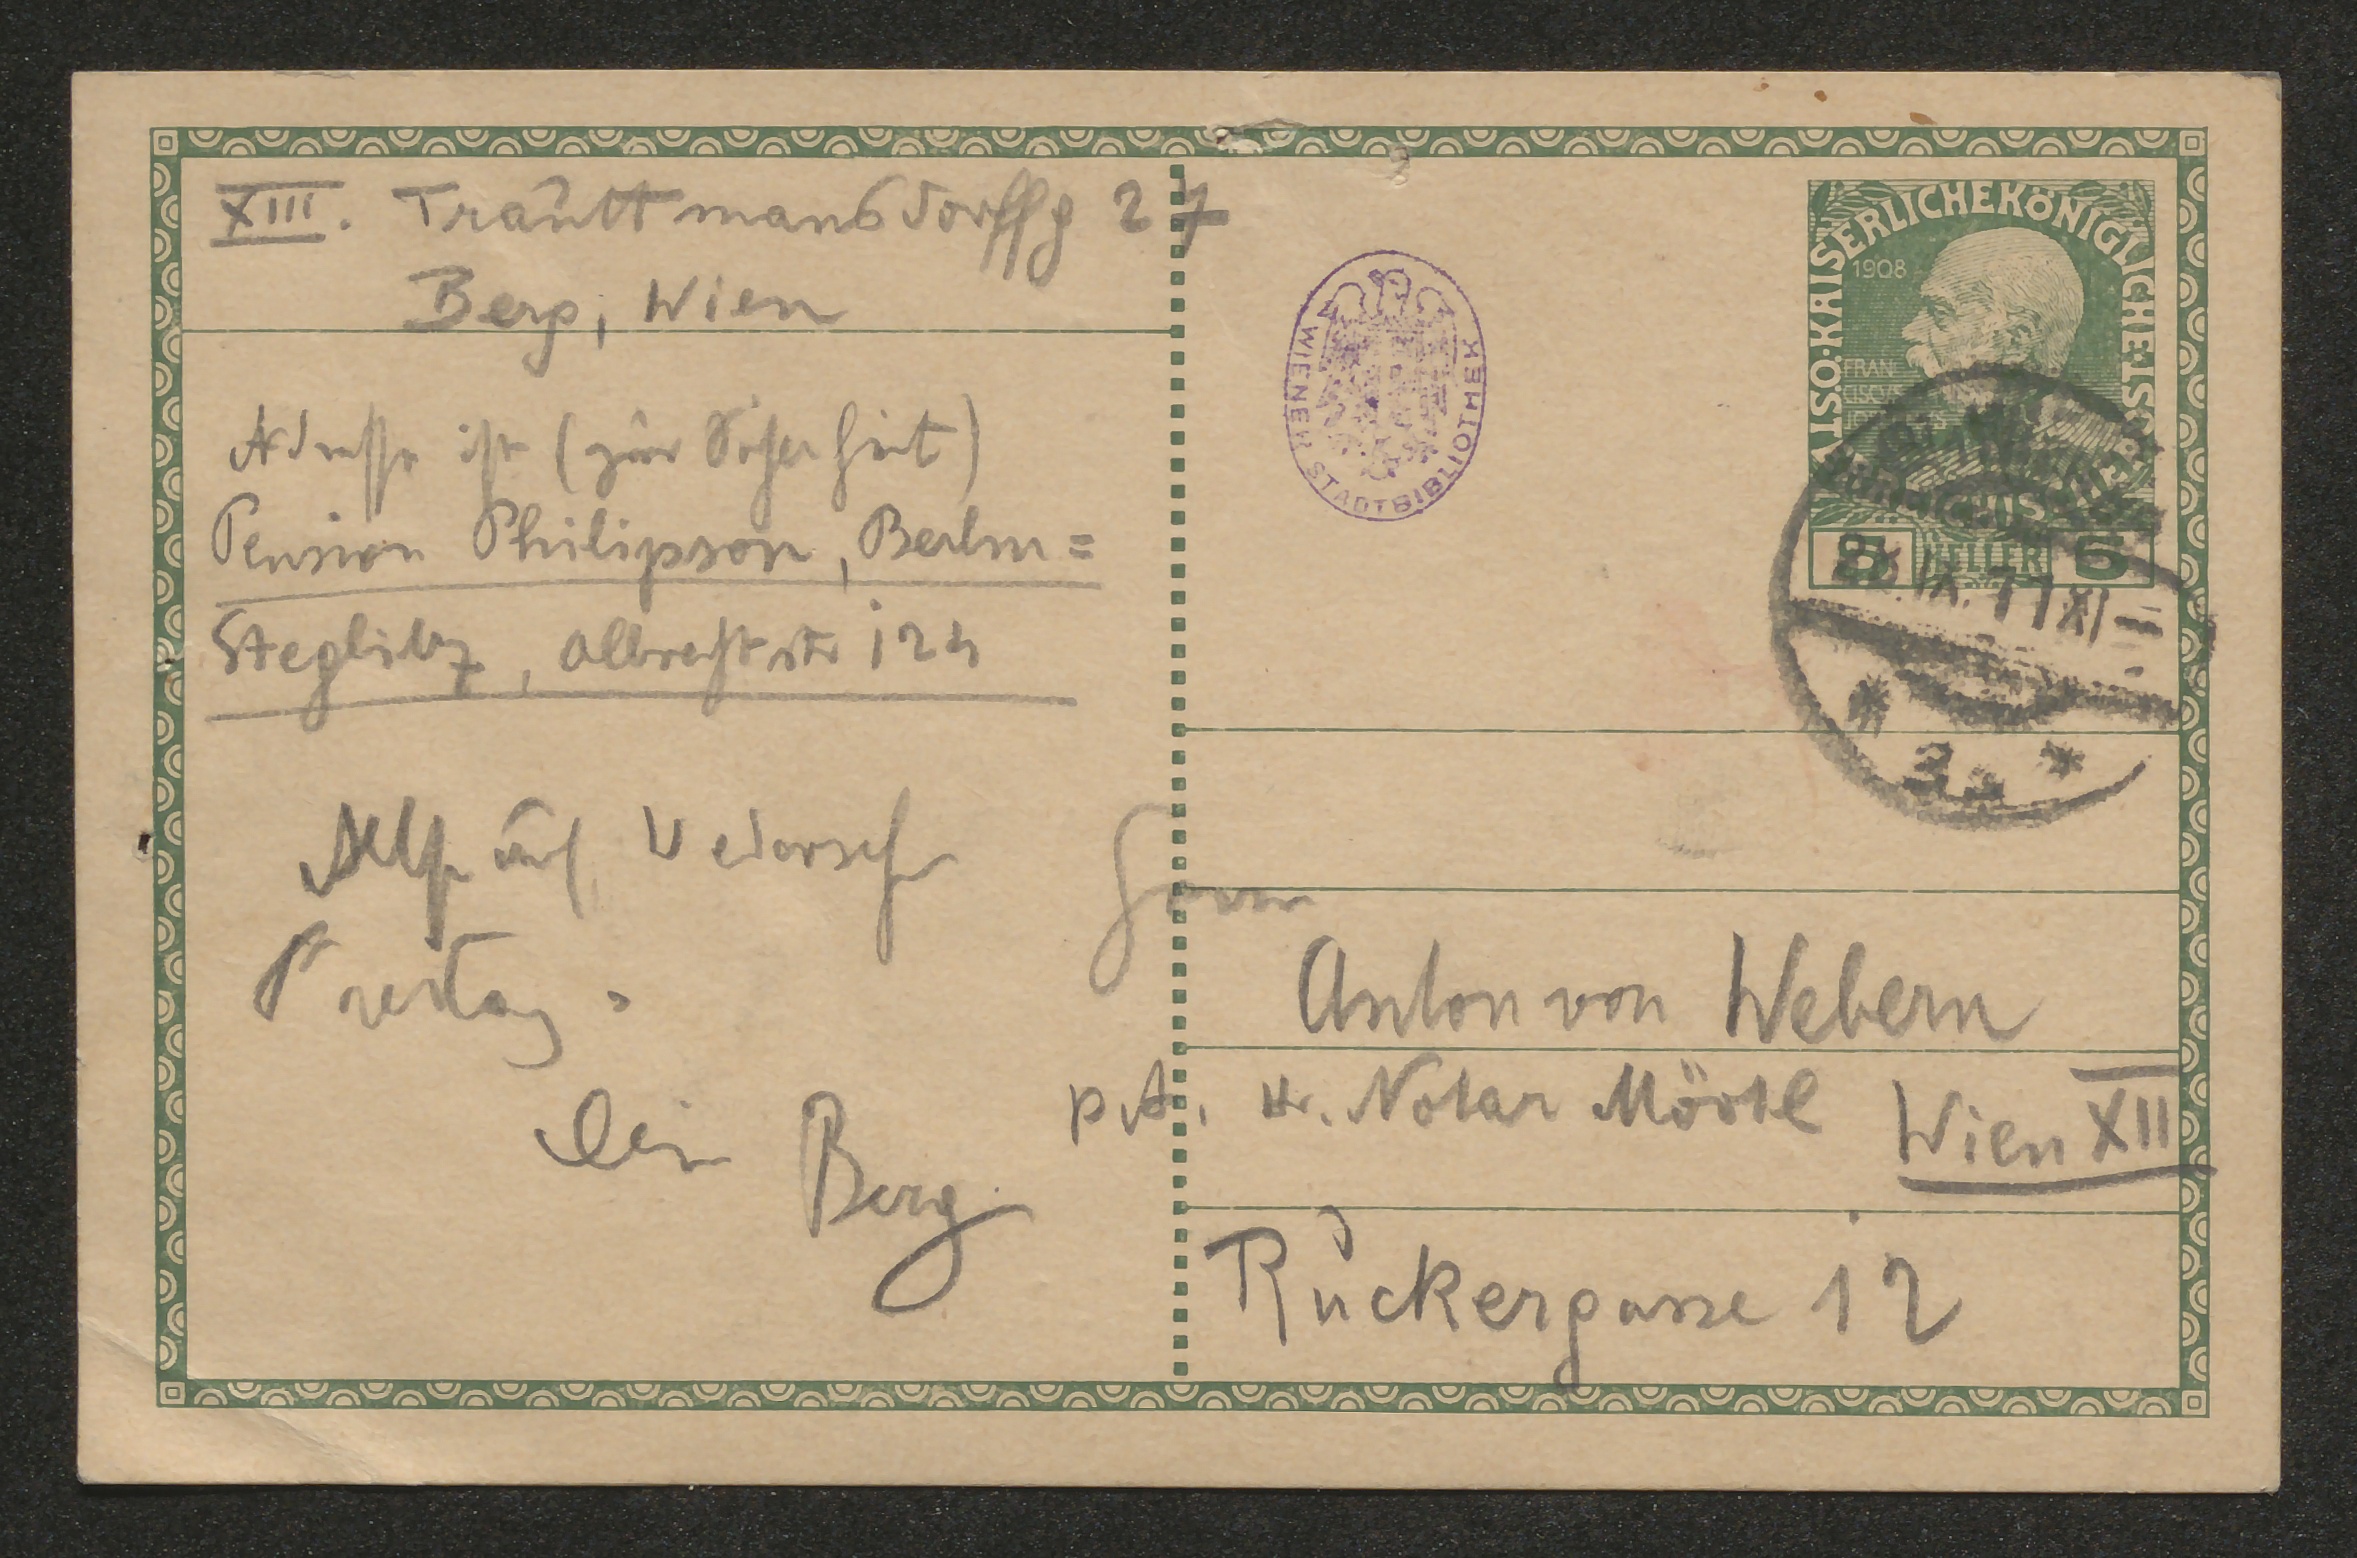 XIII. Trauttmansdorffg 27
Berg, Wien
Adresse ist (zur Sicherheit)
Pension Philipson, Berlin=
Steglitz, Albrechtstr 124
Also auf Wiedersehn
Freitag.
Dein Berg
WIENER STADTBIBLIOTHEK
KAISERLICHE KÖNIGLICHE ÖSTERREICHISCHE POST
1908
5 HELLER 5
IX. 11 XI
3a
Herrn
Anton von Webern
p. A. H. Notar Mörtl Wien XII
Rückergasse 12